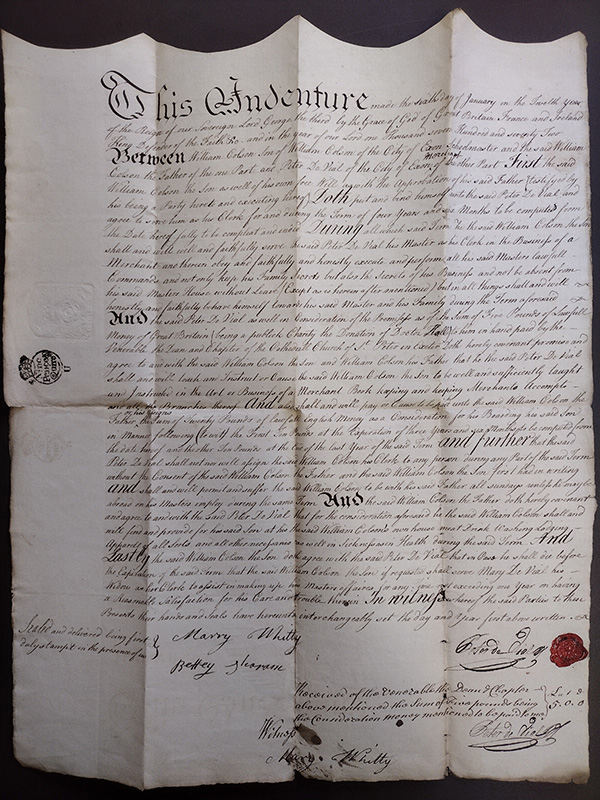 This Indenture made the sixth day of January in the Twelfth Year
of the Reign of our Sovereign Lord George the third by the Grace of God of Great Britain France and Ireland
King Defender of the Faith &c. and in the year of our Lord one Thousand seven Hundred and seventy Two
Between William Colson Son of William Colson of the City of Exon and the said William
Colson the Father of the one Part and Peter De Vial of the City of Exon Merchant of the other Part First the said
William Colson the Son as well of his own free Will as with the Approbation of his said Father (testifyed by
his being a Party hereto and executing hereof) Doth put and bind himself unto the said Peter De Vial and
agree to serve him as his Clerk for and during the Term of four Years and six Months to be computed from
the Date hereof fully to be compleat and ended During all which said Term he the said William Colson the Son
shall and will well and faithfully serve the said Peter De Vial his Master as his Clerk in the Business of a
Merchant and therein obey and faithfully and honestly execute and perform all his said Masters lawfull
Commands and not only keep his Family Secrets but also the Secrets of his Business and not be absent from
his said Masters House without Leave (Except as is herein after mentioned) but in all things shall and will
honestly and faithfully behave himself towards his said Master and his Family during the Term aforesaid
And the said Peter De Vial as well in Consideration of the Premisses as of the Sum of Five Pounds of Lawfull
Money of Great Britain (being a publick Charity the Donation of Doctor Hall) to him in hand paid by the
Venerable the Dean and Chapter of the Cathedrall Church of St. Peter in Exeter Doth hereby covenant promise and
agree to and with the said William Colson the Son and William Colson his Father that he the said Peter De Vial
shall and will teach and Instruct or Cause the said William Colson the Son to be well and sufficiently taught
and Instructed in the Art or Business of a Merchant Book keeping and keeping Merchants Accompts
and all the Branches thereof And also shall and will pay or Cause to be paid unto the said William Colson the
Father the Sum of Twenty Pounds of Lawfull English Money as a Consideration for his Boarding his said Son
in Manner following (to wit) the First Ten Pounds at the Expiration of three Years and six Months to be computed from
the date hereof and the other Ten Pounds at the End of the last Year of the said Term And further that the said
Peter De Vial shall not nor will assign the said William Colson his Clerk to any person during any Part of the said Term
without the Consent of the said William Colson the Father and the said William Colson the Son first had in writing
And shall and will permit and suffer the said William Colson to be with his said Father all sundays unless he may be
abroad on his Masters employ during the same Term And the said William Colson the Father doth hereby covenant
and agree to and with the said Peter De Vial that for the consideration aforesaid he the said William Colson shall and
will find and provide for his said Son at his the said William Colson's own house meat Drink Washing Lodging
Apparell of all Sorts and all other necessaries as well in Sickness as in Health during the said Term And
Lastly the said William Colson the Son doth agree with the said Peter De Vial that in Case he shall die before
the Expiration of the said Term that the said William Colson the Son if requested shall serve Mary De Vial his
Widow as her Clerk to assist in making up his Masters Affairs for any time not exceeding one Year on having
a Reasonable Satisfaction for his Care and trouble therein In Witness whereof the said Parties to these
Presents their hands and Seals have hereunto interchangeably set the day and Year first above written
Sealed and delivered being first
duly stampt in the presence of us
Marry Whitty
Bettey
Peter De Vial
Received of the Venerable the Dean & Chapter
above mentioned the Sum of Five pounds being
the Consideration money mentioned to be paid to me
£ s d
5. 0. 0
Peter De Vial
Witness
Mary Whitty